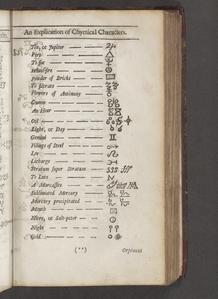 An Explication of Chymical Characters.
Tin, or Jupiter
Fire
To fix
Powder of Bricks
To filtrate
Flowers of Antimony
Gumm
An Hour
Oil
Light, or Day
Gemini
Filings of Steel
Lee
Litharge
Stratum super Stratum
To Lute
A Marcassite
Sublimated Mercury
Mercury precipitated
Month
Nitre, or Salt-peter
Night
Gold
(**) Orpiment